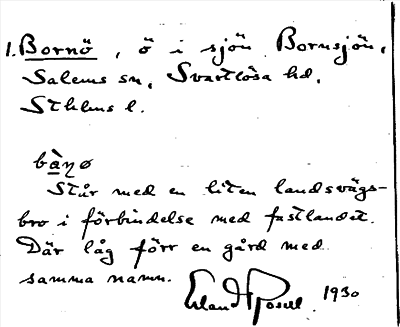 1. Bornö, ö i sjön Bornsjön,
Salems sn, Svartlösa hd,
Sthlms l.
bàṇø
Står med en liten landsvägs-
bro i förbindelse med fastlandet.
Där låg förr en gård med
samma namn.
Erland Rosell 1930